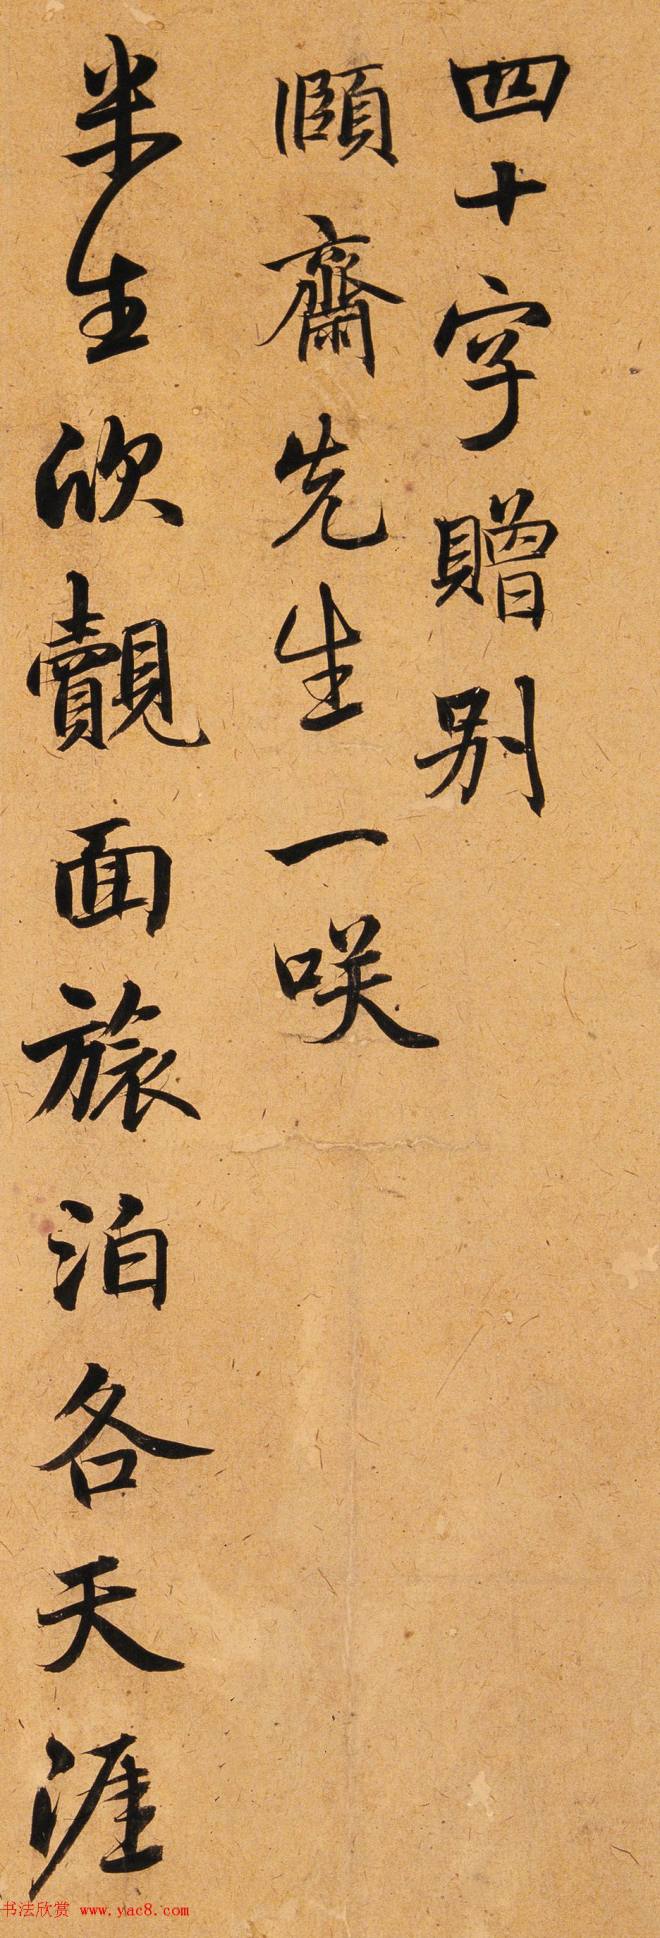 四十字贈别
頤齋先生一咲
半生欣覿面旅泊各天涯
书法欣赏 www.yac8.com